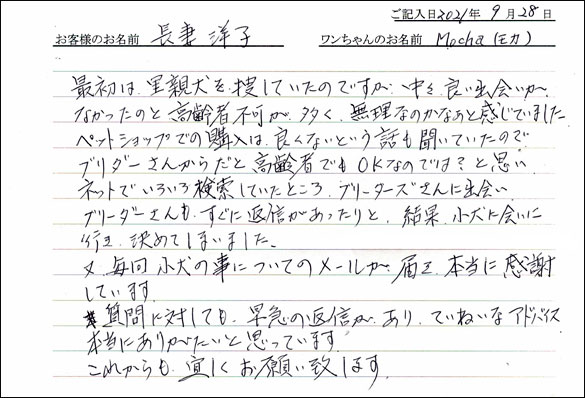 ご記入日 2021年 9月 28日
お客様のお名前 長妻 洋子 ワンちゃんのお名前 Mocha(モカ)
最初は、里親犬を捜していたのですが、中々良い出会いが
なかったのと高齢者不可が多く、無理なのかなぁと感じていました
ペットショップでの購入は、良くないという話も聞いていたので
ブリダーさんからだと高齢者でもOKなのでは?と思い
ネットでいろいろ検索していたところ、ブリーダーズさんに出会い
ブリーダーさんも、すぐに返信があったりと、結果、小犬に会いに
行き、決めてしまいました。
又、毎回小犬の事についてのメールが、届き、本当に感謝
しています。
質問に対しても、早急の返信があり、ていねいなアドバイス
本当にありがたいと思っています。
これからも、宜しくお願い致します。